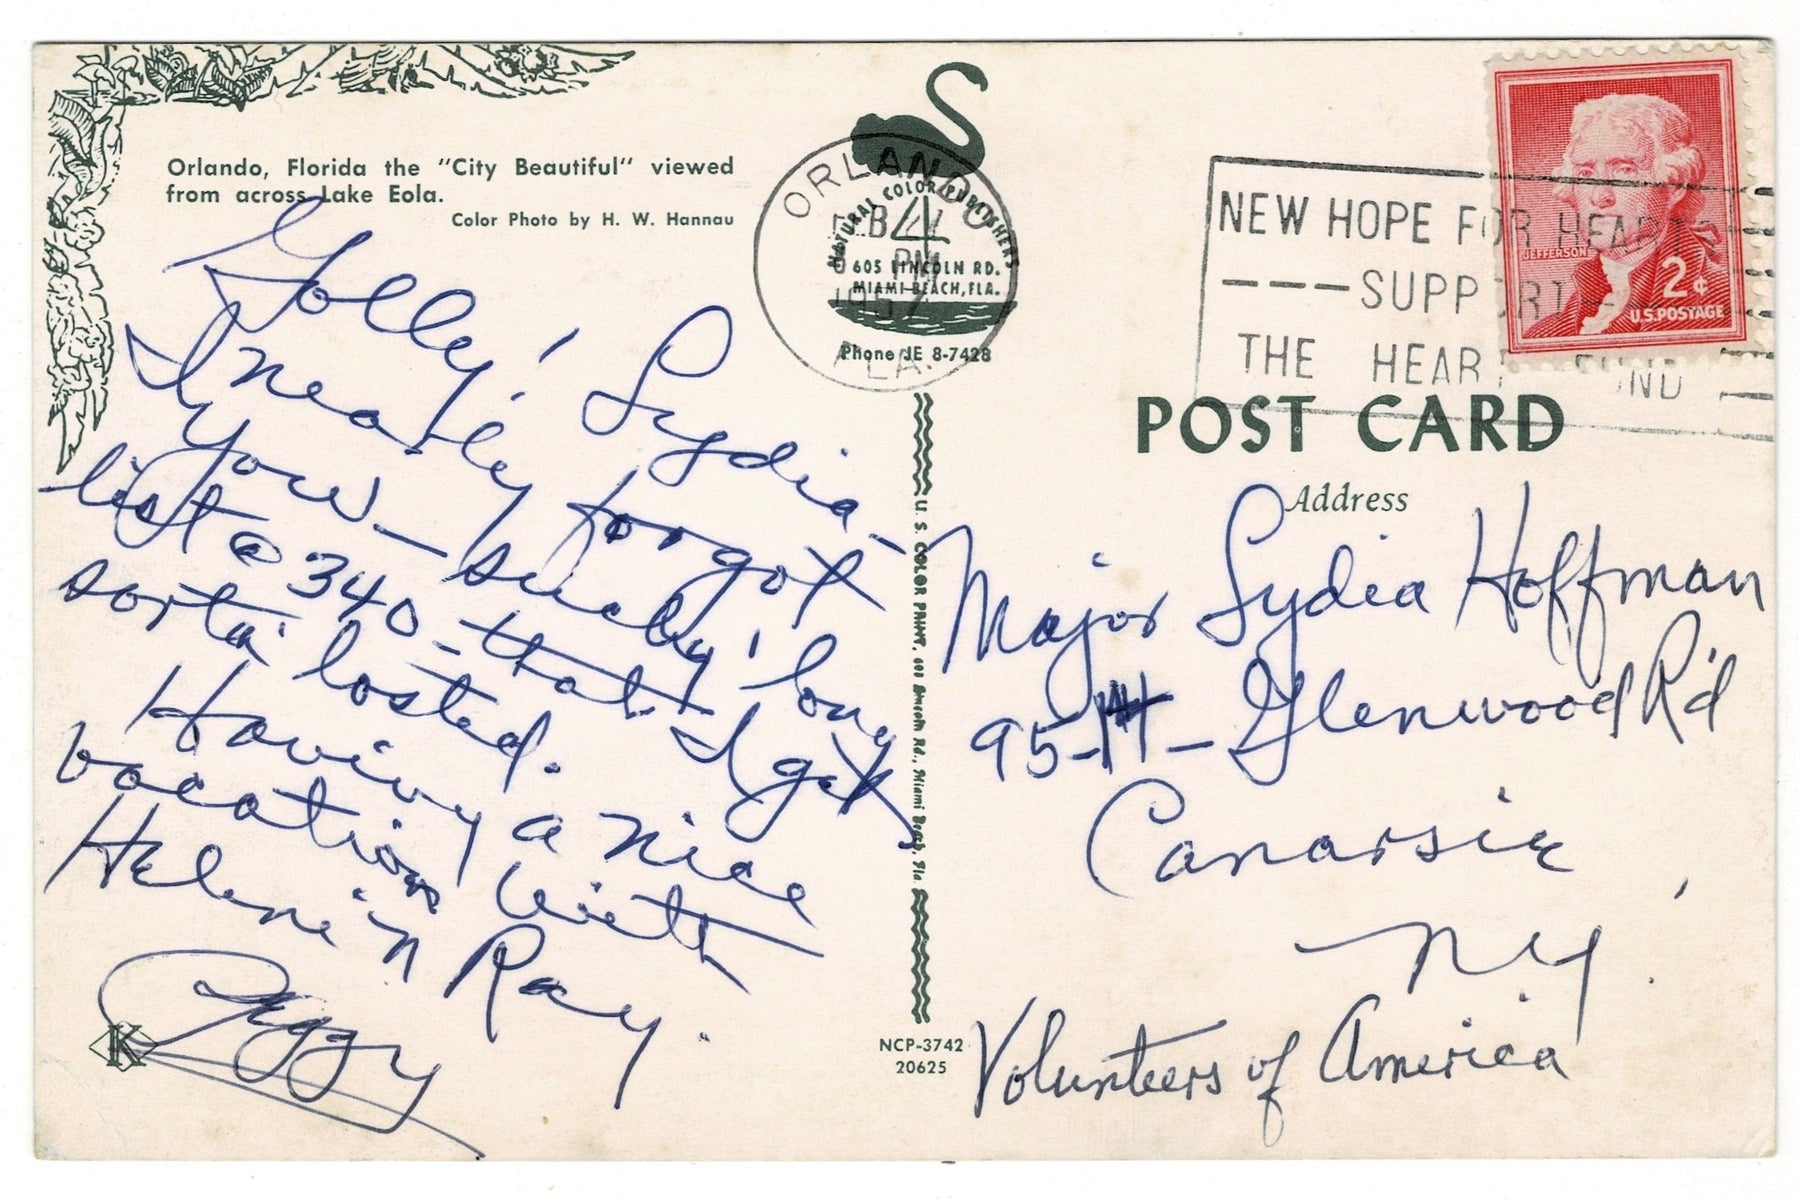 Orlando, Florida the "City Beautiful" viewed
from across Lake Eola.
Color Photo by H. W. Hannau
Golly! Lydia -
I nearly forgot
you - such a long
list @ 340 - that I get
sorta' losted.
Having a nice
vacation with
Helen 'n Ray.
Peggy
K
ORLANDO
FEB
PM
1957
FLA.
NATURAL COLOR PUBLISHERS
605 LINCOLN RD.
MIAMI BEACH, FLA.
Phone JE 8-7428
U. S. COLOR PRINT, Lincoln Rd., Miami Beach, Fla
NCP-3742
20625
NEW HOPE FOR HEARTS
----SUPPORT----
THE HEART FUND
JEFFERSON
2¢
U.S. POSTAGE
POST CARD
Address
Major Lydia Hoffman
95-14 - Glenwood Rd
Canarsie,
N Y.
Volunteers of America